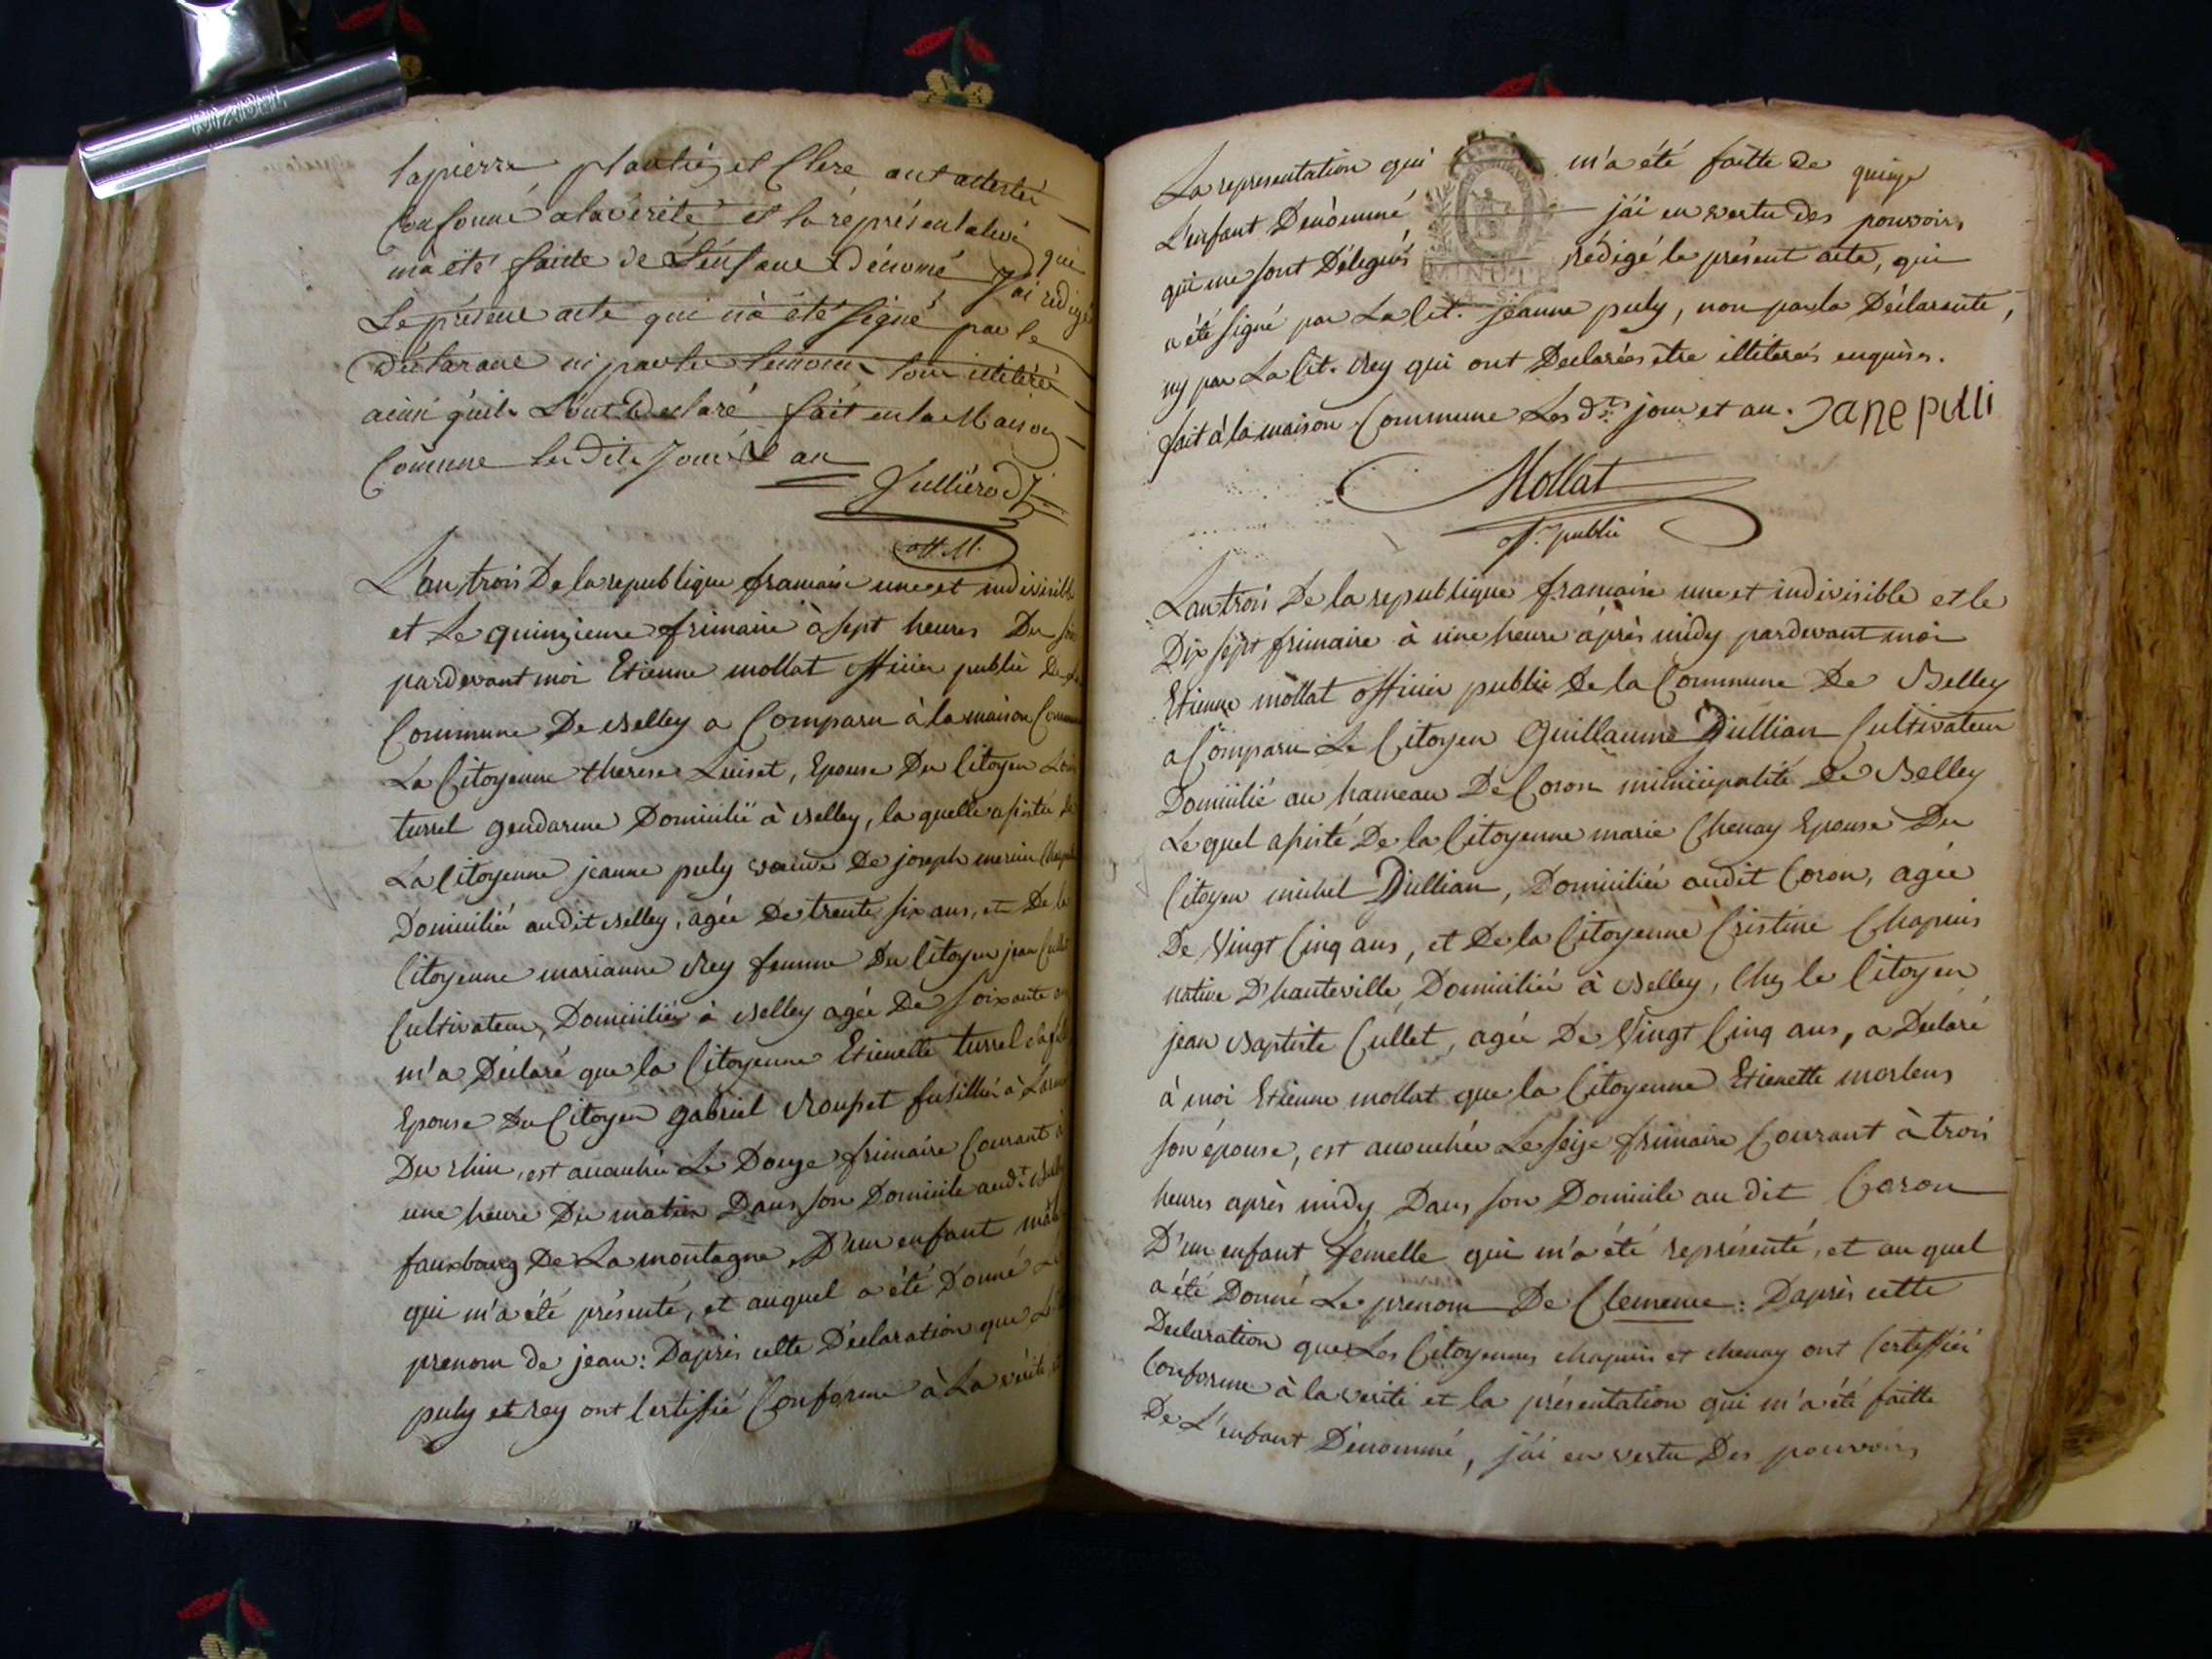 lapierre plantiez et Clere ont attesté
Conforme a la vérité et la représentation qui
m'a été faitte de L'enfant dénomé J'ai redigé
Le présent acte qui n'a été signé par le
Déclarant ni par les temoins pour illitérés
ainsi quils L'ont Declaré fait en la Maison
Comune les dits Jour et an
off. M.
L'an trois De la republique francaise une et indivisible
et Le quinzieme frimaire à sept heures Du soir
pardevant moi Etienne mollat officier public De la
Commune De Belley a Comparu à la maison Commune
La Citoyenne therese Luiset, Epouse Du Citoyen
turrel gendarme Domicilié à Belley, la quelle assistée de
La Citoyenne jeanne puly veuve De joseph
Domiciliée audit Belley, agée De trente six ans, et De la
Citoyenne marianne Rey femme Du Citoyen jean
Cultivateur, Domiciliée à Belley agée De soixante ans
m'a Déclaré que la Citoyenne Etienette turrel sa fille
Epouse Du Citoyen gabriel Roupet fusillier à L'armée
Du rhin, est accouchée Le Douze frimaire Courant à
une heure Du matin Dans son Domicile aud.t Belley
fauxbourg De La montagne, D'un enfant mâle
qui m'a été présenté, et auquel a été Donné Le
prenom de jean: D'après cette Déclaration que Les
puly et Rey ont Certifié Conforme à La vérité, et
La representation qui m'a été faitte De
L'enfant Dénommé j'ai en vertu des pouvoirs
qui me sont Délegués rédigé le présent acte, qui
MINUTE
a été signé par La Cit. jeanne puly, non par la Déclarante,
ny par La Cit. Rey qui ont Declarées être illiterées enquises.
fait à la maison Commune Les d.ts jour et an. Jane pulli
Mollat
off. public
L'an trois De la republique francaise une et indivisible et le
Dix sept frimaire à une heure après midy pardevant moi
Etienne mollat officier public De la Commune De Belley
a Comparu Le Citoyen Guillaume Dullian Cultivateur
Domicilié au hameau De Coron municipalité De Belley
Lequel assisté De la Citoyenne marie Chenay Epouse Du
Citoyen michel Dullian, Domiciliée audit Coron, agée
De Vingt Cinq ans, et De la Citoyenne Cristine Chapuis
native D'hauteville Domiciliée à Belley, Chez le Citoyen
jean Baptiste Cullet, agée De Vingt Cinq ans, a Déclaré
à moi Etienne mollat que la Citoyenne Etienette
son épouse, est accouchée Le seize frimaire Courant à trois
heures après midy Dans son Domicile au dit Coron
D'un enfant femelle qui m'a été représenté, et au quel
a été Donné Le prenom De Clemence: D'après cette
Declaration que Les Citoyennes chapuis et chenay ont Certiffiés
Conforme à la verité et la présentation qui m'a été faitte
De L'enfant Dénommé, j'ai en vertu Des pouvoirs